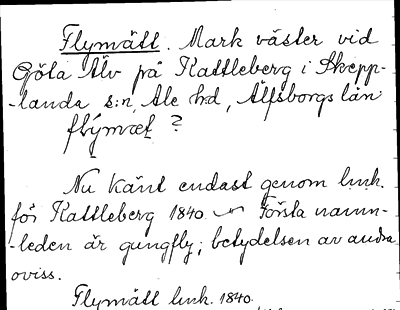 Flymäll. Mark väster vid
Göta Älv på Kattleberg i Skepp-
-landa s:n, Ale hd, Älfsborgs län
?
Nu känt endast genom lmk.
för Kattleberg 1840. Första namn-
-leden är gungfly; betydelsen av andra
oviss.
Flymäll lmk. 1840.